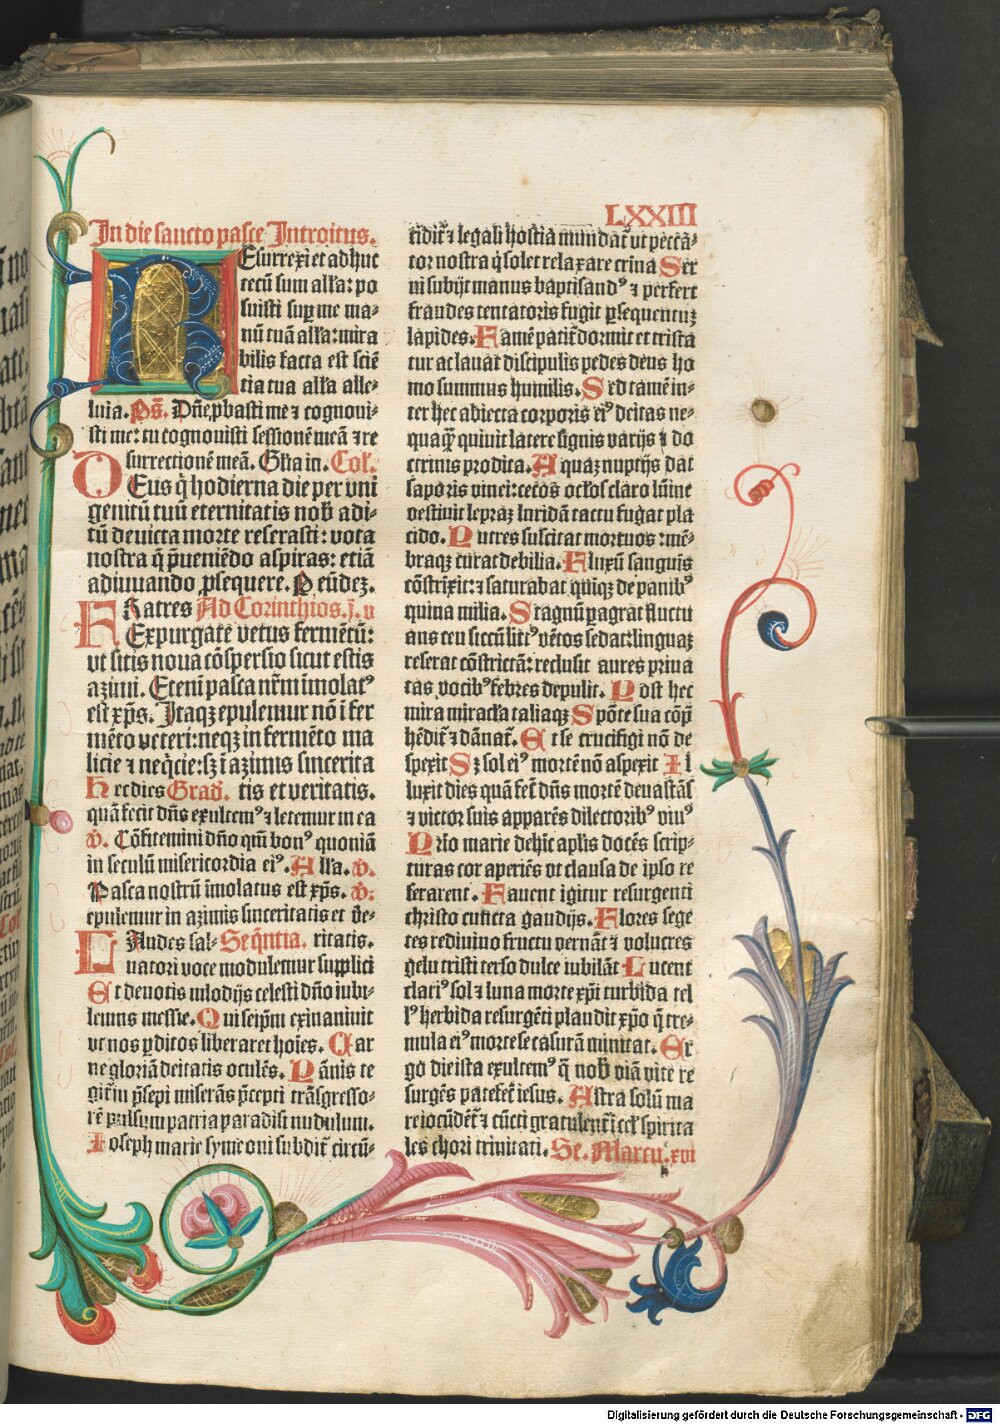 LXXIII
In die sancto pasce Introitus.
REsurrexi et adhuc
tecū sum alľa: po
suisti suꝑ me ma-
nū tuā alľa: mira
bilis facta est sciē
tia tua alľa alle-
luia. Ps̄. Dn̄e ꝓbasti me ⁊ cognoui-
sti me: tu cognouisti sessionē meā ⁊ re
surrectionē meā. Gľia in. Col̄.
DEus q̇ hodierna die per vni
genitū tuū eternitatis nob̄ adi-
tū deuicta morte reserasti: vota
nostra q̄ p̄ueniēdo aspiras: etiā
adiuuando ꝓsequere. P eūdeꝫ.
FRatres Ad Corinthios.j.v
Expurgate vetus fermētū:
vt sitis noua cōspersio sicut estis
azimi. Eteni pasca nr̄m imolatꝰ
est xp̄s. Itaqꝫ epulemur nō i fer
mēto veteri: neqꝫ in fermēto ma
licie ⁊ neq̇cie: sꝫ i azimis sincerita
Hec dies Grad̄. tis et veritatis.
quā fecit dn̄s exultemꝰ ⁊ letemur in ea
v̄. Cōfitemini dn̄o qm̄ bonꝰ quoniā
in seculū misericordia eiꝰ. Alľa. v̄.
Pasca nostrū īmolatus est xp̄s. v̄.
epulemur in azimis sinceritatis et ve-
LAudes sal- Seq̄ntia. ritatis.
uatori voce modulemur supplici
Et deuotis mlodijs celesti dn̄o iubi-
lemus messie. Qui seip̄m exinaniuit
vt nos ꝑditos liberaret hoīes. Car
ne gloriā deitatis oculēs. Pānis te
git̄ in p̄sepi miserās p̄cepti trāsgresso-
rē pulsum patria paradisi nudulum.
Ioseph marie symeoni subdit̄ circū-
cidit̄ ⁊ legali hostia mundat̄ ut pecca-
tor nostra q̇ solet relaxare crina Ser
ui subijt manus baptisandꝰ ⁊ perfert
fraudes tentatoris fugit ꝑsequentuꝫ
lapides. Famē patit̄ dormit et trista
tur ac lauat discipulis pedes deus ho
mo summus humilis. Sed tamē in-
ter hec abiecta corporis eiꝰ deitas ne-
quaq̄ quiuit latere signis varijs ⁊ do
ctrinis prodita. Aquaꝫ nuptijs dat
saporis vinei: cecos ocľos claro lūine
vestiuit lepraꝫ luridā tactu fugat pla
cido. Putres suscitat mortuos: mē-
braqꝫ curat debilia. Fluxū sanguis
cōstrixit: ⁊ saturabat quiqꝫ de panibꝰ
quina milia. Stagnū ꝑagrat fluctu
ans ceu siccū litꝰ vētos sedat: linguaꝫ
reserat cōstrictā: reclusit aures priua
tas vocibꝰ febres depulit. Post hec
mira miracľa taliaqꝫ Spōte sua cōp̄
hēdit̄ ⁊ dānat̄. Et se crucifigi nō de
spexit Sꝫ sol eiꝰ mortē nō aspexit Il
luxit dies quā fec̄ dn̄s mortē deuastās
⁊ victor suis apparēs dilectoribꝰ viuꝰ
Prīo marie dehīc apľis docēs scrip-
turas cor aperiēs vt clausa de ipso re
serarent. Fauent igitur resurgenti
christo cuncta gaudijs. Flores sege
tes rediuino fructu vernāt ⁊ volucres
gelu tristi terso dulce iubilāt Lucent
clariꝰ sol ⁊ luna morte xp̄i turbida tel
lꝰ herbida resurgēti plaudit xp̄o q̄ tre-
mula eiꝰ morte se casurā minitat. Er
go die ista exultemꝰ q̄ nob̄ viā vite re
surgēs patefec̄ iesus. Astra solū ma
re iocūdēt̄ ⁊ cūcti gratulent̄ ī cel̄ spirita
les chori trinitati. Sc̄. Marcū.xvi
Digitalisierung gefördert durch die Deutsche Forschungsgemeinschaft - DFG